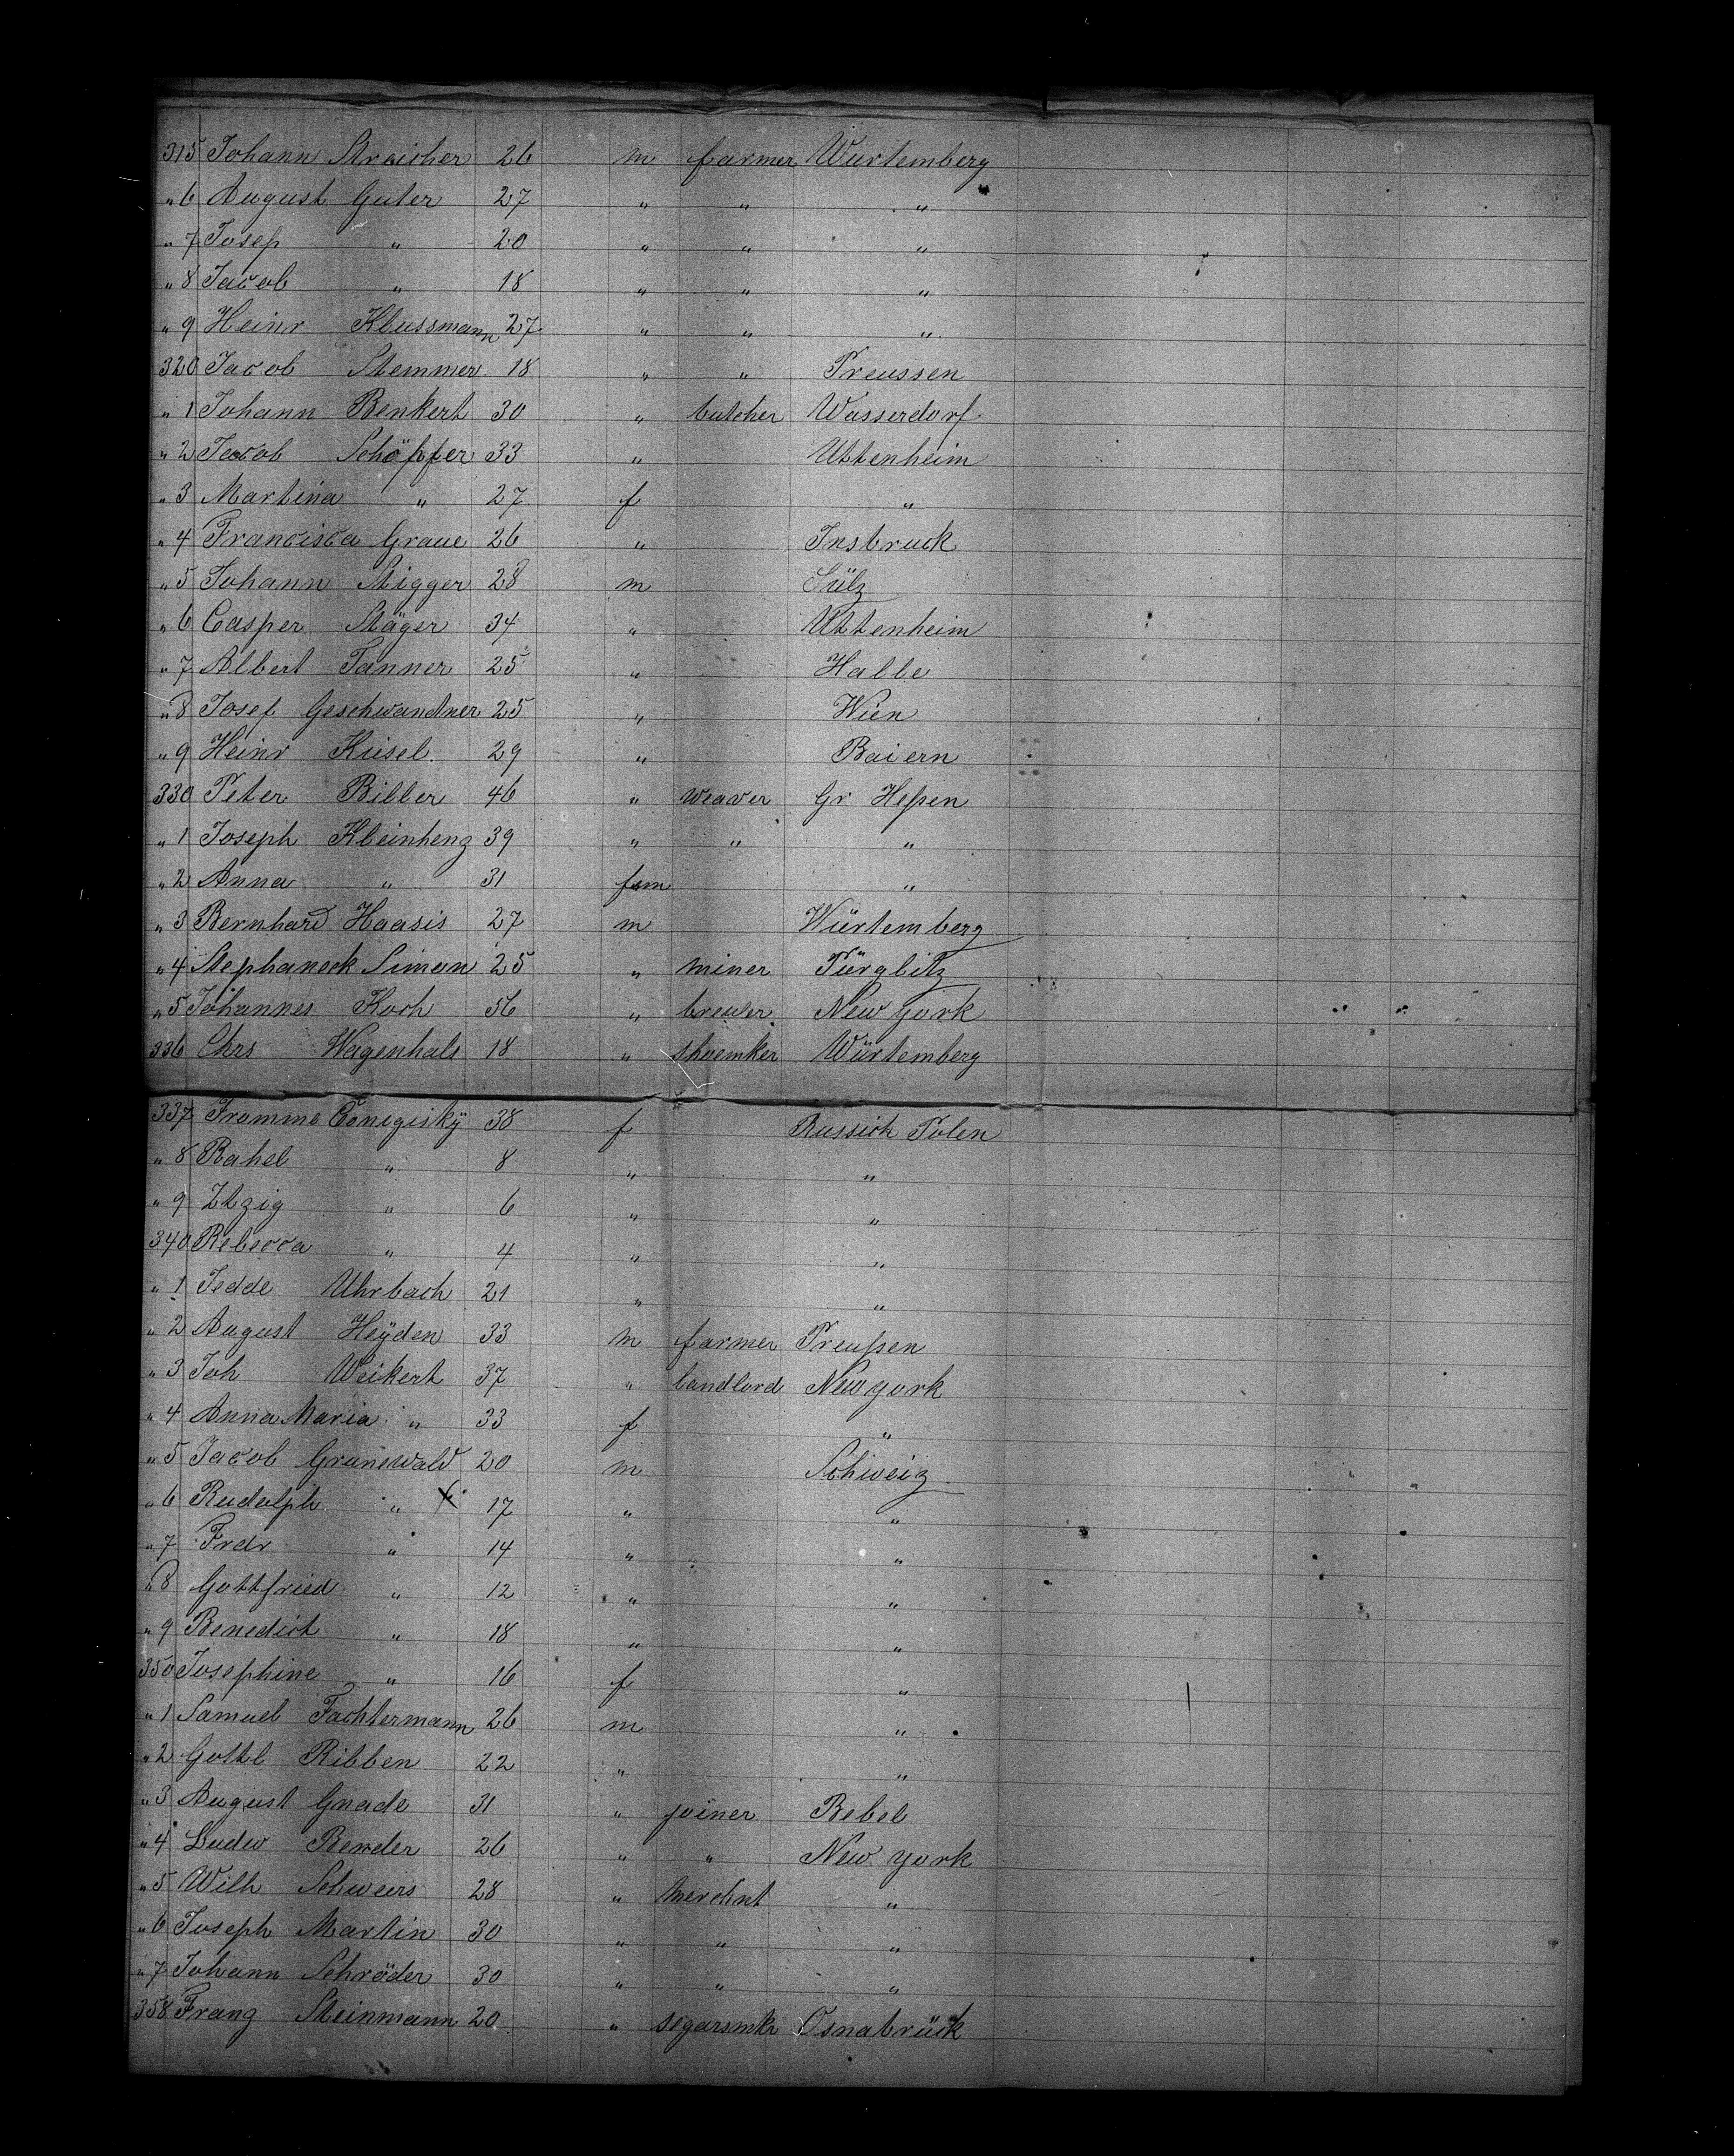 315 Johann Streicher 26 m farmer Würtemberg
" 6 August Guter 27 " " "
" 7 Josep " 20 " " "
" 8 Jacob " 18 " " "
" 9 Heinr Klussmann 27 " " "
320 Jacob Stemmer 18 " " Preussen
" 1 Johann Benkert 30 " butcher Wasserdorf
" 2 Jacob Schöpfer 33 " Uttenheim
" 3 Martina " 27 f "
" 4 Francisca Graue 26 " Insbruck
" 5 Johann Migger 28 m Sülz
" 6 Casper Mäger 34 " Uttenheim
" 7 Albert Tanner 25 " Halle
" 8 Josef Geschwandner 25 " Wien
" 9 Heinr Kiesel 29 " Baiern
330 Peter Biller 46 " weaver Gr Heßen
" 1 Joseph Kleinhenz 39 " " "
" 2 Anna " 31 fem "
" 3 Bernhard Haasis 27 m Würtemberg
" 4 Stephaneck Simon 25 " miner Pürglitz
" 5 Johannes Koch 56 " brewer New York
336 Chrs Wagenhals 18 " shoemker Würtemberg
337 Fromme 38 f Russich Polen
" 8 Rahel " 8 " "
" 9 Itzig " 6 " "
340 Rebecca " 4 " "
" 1 Jedde Uhrbach 21 " "
" 2 August Heÿden 33 m farmer Preußen
" 3 Joh Weikert 37 " landlord New york
" 4 Anna Maria " 33 f "
" 5 Jacob Grunewald 20 m Schweiz
" 6 Rudolph " 17 " "
" 7 Frdr " 14 " "
" 8 Gottfried " 12 " "
" 9 Benedict " 18 " "
350 Josephine " 16 f "
" 1 Samuel Fachtermann 26 m "
" 2 Gottl Ribben 22 " "
" 3 August Gnade 31 " joiner Rebel
" 4 Ludw Bender 26 " " New york
" 5 Wilh Schweers 28 " merchnt "
" 6 Joseph Martin 30 " " "
" 7 Johann Schröder 30 " " "
358 Franz Steinmann 20 " segarsmkr Osnabrück